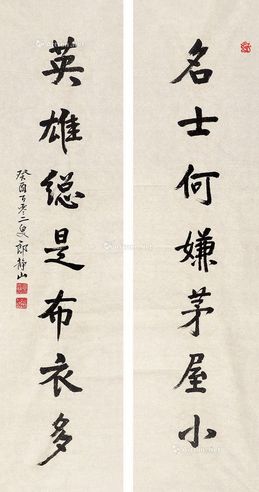 名士何嫌茅屋小
英雄總是布衣多
癸酉百零二叟郎靜山